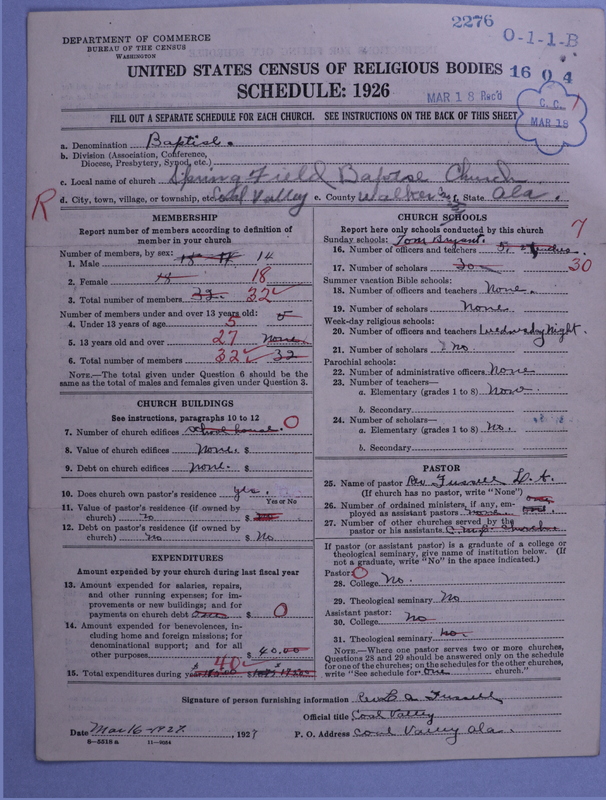 2276
O-1-1-B
DEPARTMENT OF COMMERCE
BUREAU OF THE CENSUS
WASHINGTON
UNITED STATES CENSUS OF RELIGIOUS BODIES 1604
SCHEDULE: 1926
MAR 18 Rec'd
C. C.
MAR 18
FILL OUT A SEPARATE SCHEDULE FOR EACH CHURCH. SEE INSTRUCTIONS ON THE BACK OF THIS SHEET
a. Denomination Baptist.
b. Division (Association, Conference,
Diocese, Presbytery, Synod, etc.)
c. Local name of church Spring Field Baptist Church
d. City, town, village, or township, etc. Coal Valley e. County Walker f. State Ala.
R
MEMBERSHIP
Report number of members according to definition of
member in your church
Number of members, by sex:
1. Male 14
2. Female 18
3. Total number of members 32. 32
Number of members under and over 13 years old: 5
4. Under 13 years of age 5
5. 13 years old and over 27 None
6. Total number of members 32 32
NOTE.—The total given under Question 6 should be the
same as the total of males and females given under Question 3.
CHURCH BUILDINGS
See instructions, paragraphs 10 to 12
7. Number of church edifices School house. 0
8. Value of church edifices None. $
9. Debt on church edifices None. $
10. Does church own pastor's residence yes.
Yes or No
11. Value of pastor's residence (if owned by
church) No $
12. Debt on pastor's residence (if owned by
church) No $ No
EXPENDITURES
Amount expended by your church during last fiscal year
13. Amount expended for salaries, repairs,
and other running expenses; for im-
provements or new buildings; and for
payments on church debt $ 0
14. Amount expended for benevolences, in-
cluding home and foreign missions; for
denominational support; and for all
other purposes $ 40.00
15. Total expenditures during year 40
CHURCH SCHOOLS
Report here only schools conducted by this church
Sunday schools: Tom Bryant. 7
16. Number of officers and teachers 5.
17. Number of scholars 30 30
Summer vacation Bible schools:
18. Number of officers and teachers None.
19. Number of scholars None.
Week-day religious schools:
20. Number of officers and teachers Wednesday Night.
21. Number of scholars No
Parochial schools:
22. Number of administrative officers None
23. Number of teachers—
a. Elementary (grades 1 to 8) None.
b. Secondary
24. Number of scholars—
a. Elementary (grades 1 to 8) No.
b. Secondary
PASTOR
25. Name of pastor Rev Fussell L. A.
(If church has no pastor, write "None")
26. Number of ordained ministers, if any, em-
ployed as assistant pastors None
27. Number of other churches served by the
pastor or his assistants
If pastor (or assistant pastor) is a graduate of a college or
theological seminary, give name of institution below. (If
not a graduate, write "No" in the space indicated.)
Pastor: 0
28. College No.
29. Theological seminary No
Assistant pastor:
30. College No
31. Theological seminary No.
NOTE.—Where one pastor serves two or more churches,
Questions 28 and 29 should be answered only on the schedule
for one of the churches; on the schedules for the other churches,
write "See schedule for One church."
Signature of person furnishing information Rev L A Fussell
Official title Coal Valley
Date Mar 16 - 1927. , 1927 P. O. Address Coal Valley Ala.
8—5518 a 11—9024